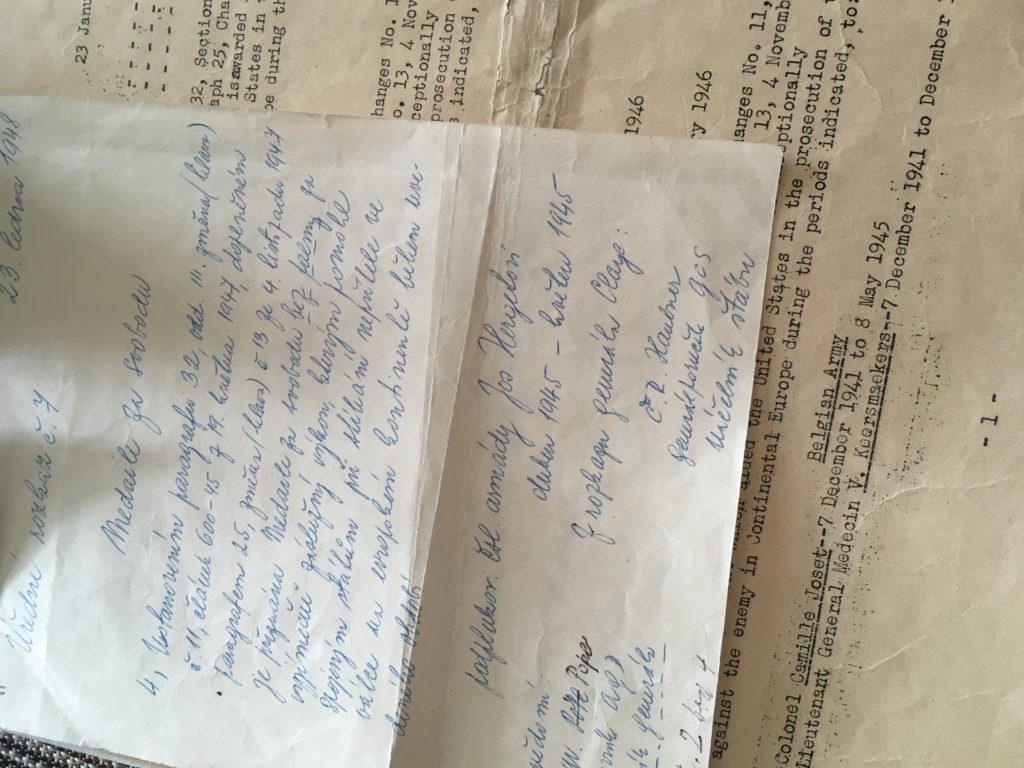 Úřední rozkaz č. 7
23. ledna 1948
Medaile za svobodu
4, Ustanovením paragrafu 32, odd. III. změna (hlava)
č 11, článek 600-45 z 19. května 1947, doplněném
paragrafem 25, změna (hlava) č 13 ze 4. listopadu 1947
je přiznána Medaile za svobodu bez palmy za
výjimečně záslužný výkon, kterým pomohl
Spojeným státům při stíhání nepřítele ve
válce na evropském kontinentě během uve-
podplukov. čsl. armády Jos. Heryloši
duben 1945 – květen 1945
Z rozkazu generála Clay:
C. R. Huebner
generálporučík GSC
Náčelník štábu
. Pope
23 Janu
32, Section
aph 25, Cha
is awarded
States in
e during th
hanges No. 1
o. 13, 4 Nov
ceptionally
prosecution
indicated,
1946
ry 1946
hanges No. 11,
13, 4 Novemb
ptionally
aided the United States in the prosecution of
against the enemy in Continental Europe during the periods indicated, to:
Belgian Army
Colonel Camille Joset--7 December 1941 to 8 May 1945
Lieutenant General Medecin V. Keersmaekers--7 December 1941 to December
- 1 -